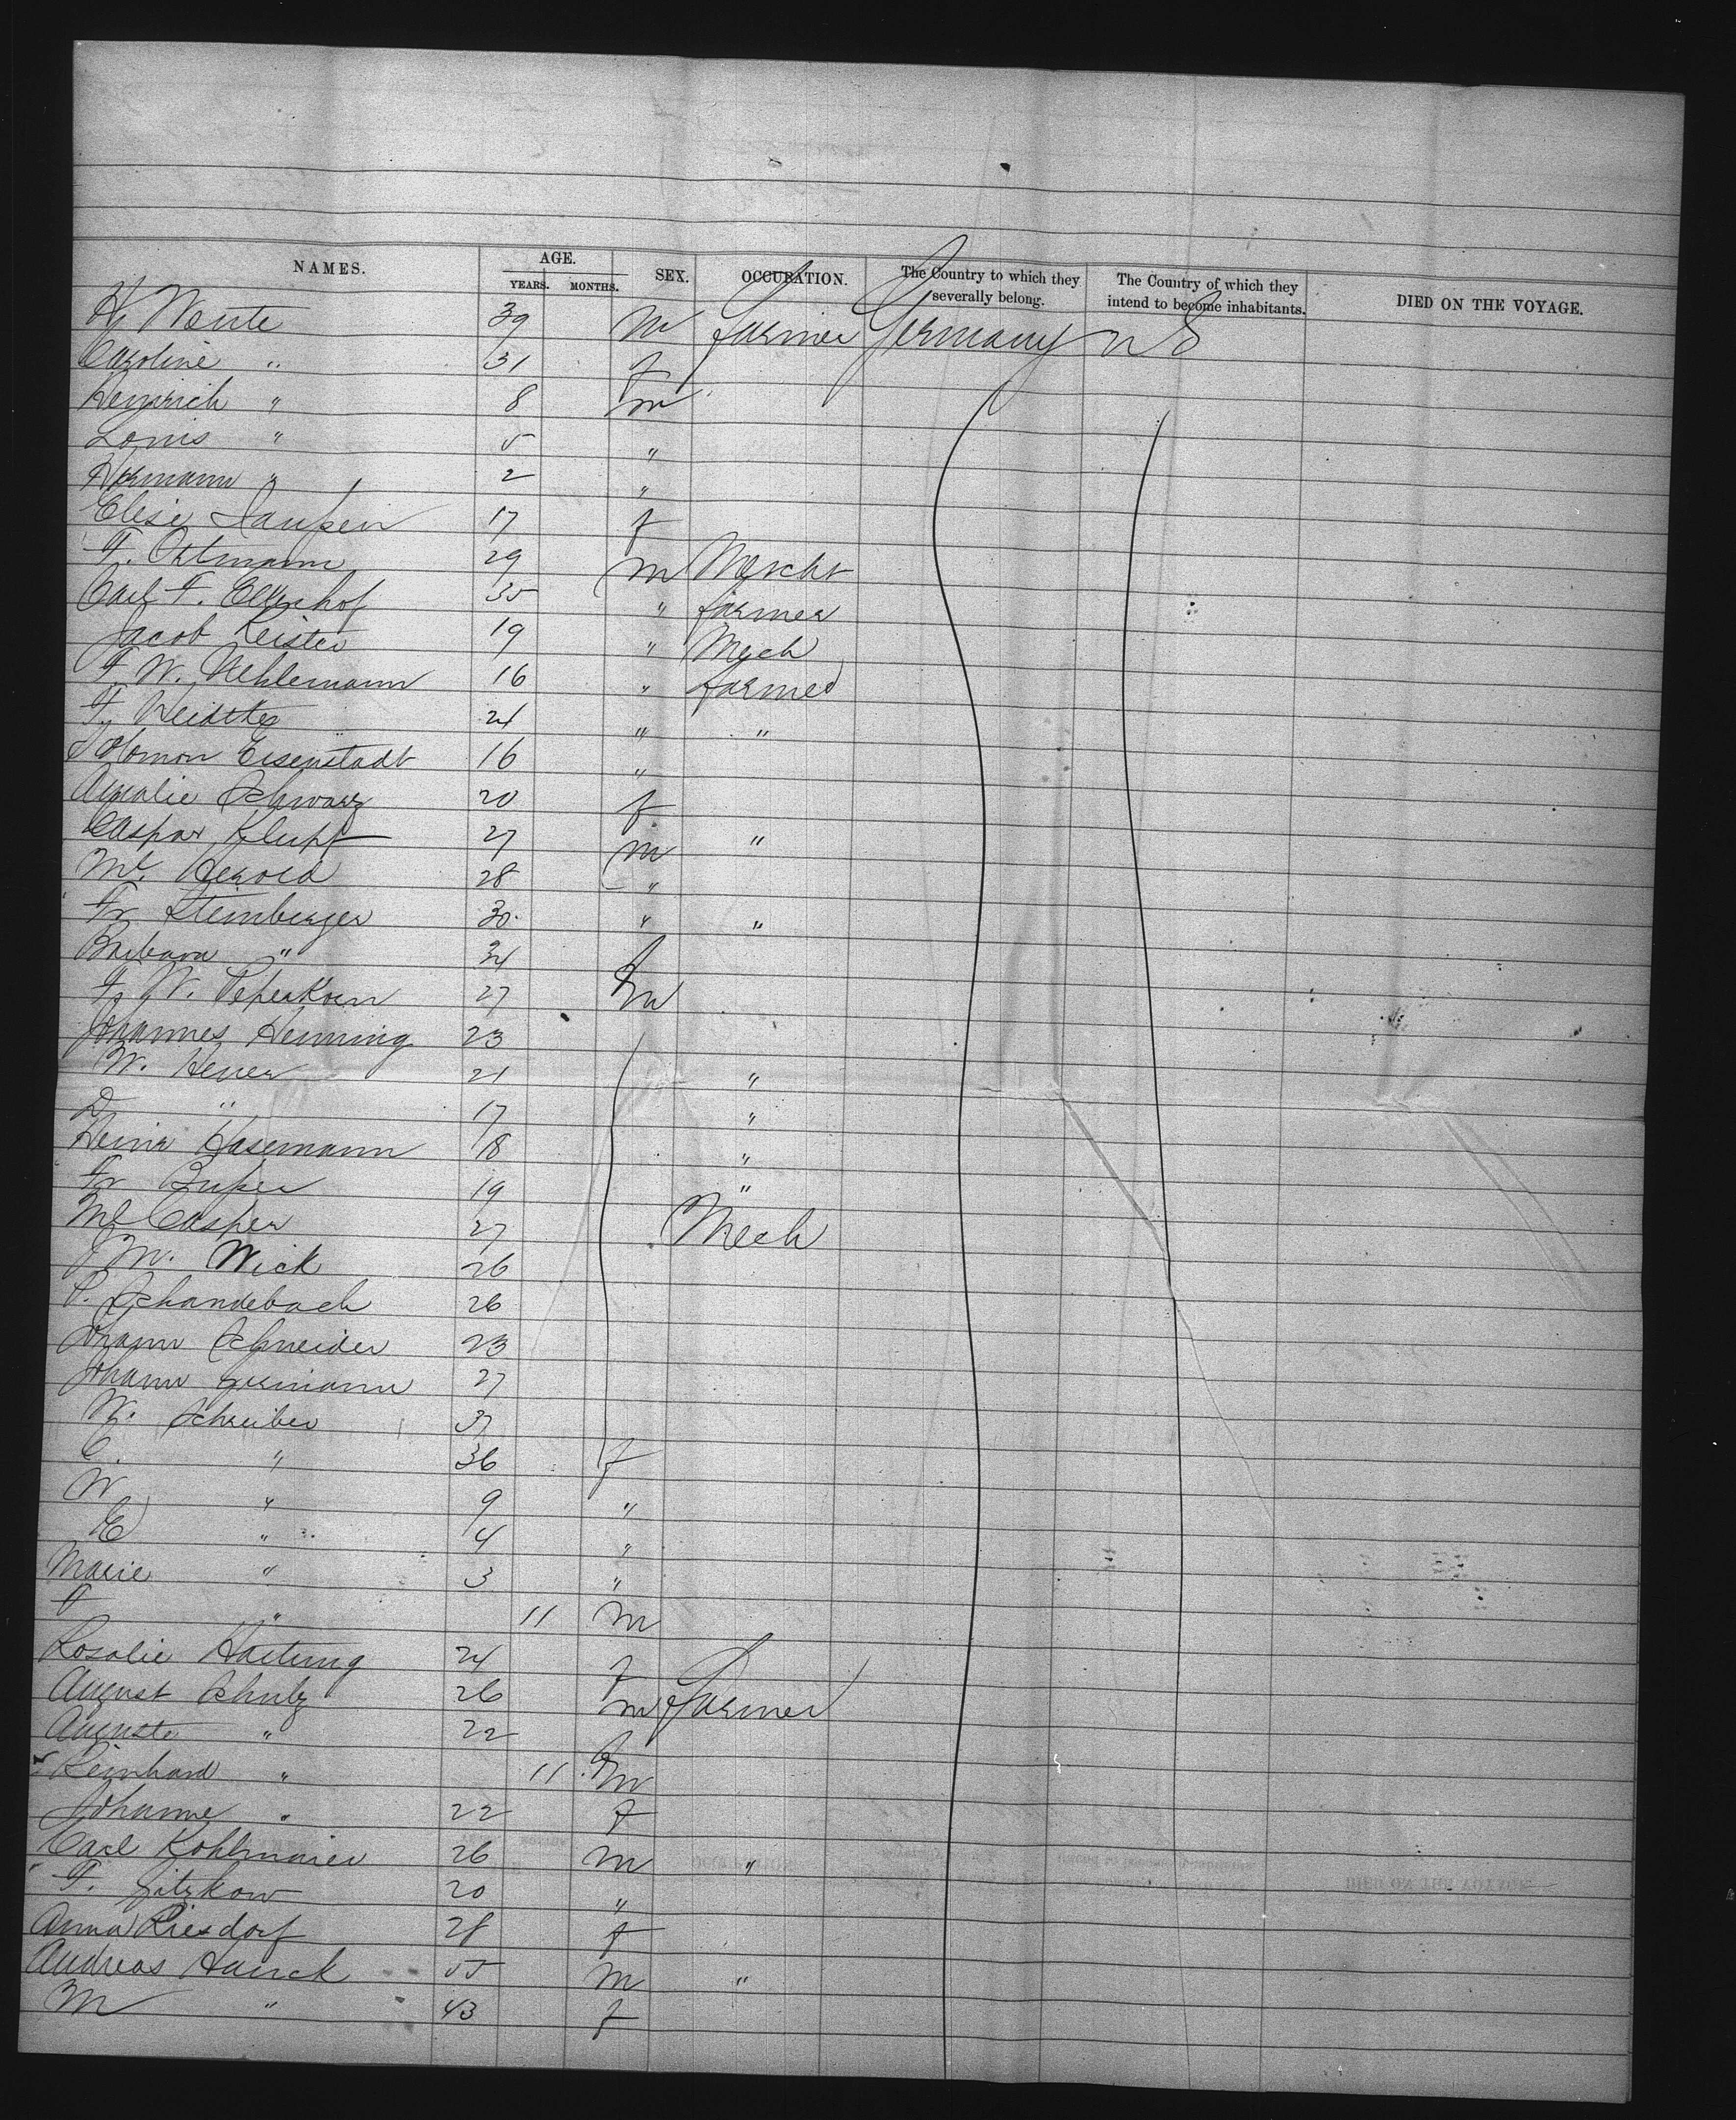 NAMES. AGE. YEARS. MONTHS. SEX. OCCUPATION. The Country to which they severally belong. The Country of which they intend to become inhabitants. DIED ON THE VOYAGE.
H. Wente 39 m farmer Germany
Caroline " 31 f
Heinrich " 8 m
Louis " 5 "
Hermann " 2 "
Elise 17 f
F. Oltmann 29 m Mercht
Carl F. Ellerhof 35 " farmer
Jacob Keister 19 " Mech
F. W. Uehlemann 16 " farmer
F. 21 " "
Solomon Eisenstadt 16 "
Amalie Schwarz 20 f
Caspar Klupf 27 m "
Ml. Herold 28 "
Fr Steinberger 30 " "
Barbara " 31 f
F. W. Peperkorn 27 m
Johannes Henning 23
W. Heuer 21 "
D " 17 "
Heinr Hasemann 18 "
Fr 19 "
Ml Casper 27 Mech
J M. Wick 26
P. Schandebach 26
Johann Schneider 23
Johann Germann 27
W. Schreiber 37
C. " 36 f
W " 9 "
E " 4 "
Marie " 3 "
F " 11 m
Rosalie Hartung 24 f
August Schulz 26 m Farmer
Auguste " 22 f
Reinhard " 11 m
Johanne " 22 f
Carl Kohlmaier 26 m "
F. Gitzkow 20 "
Anna Riesdorf 28 f
Andreas Hauck 55 m "
M " 43 f